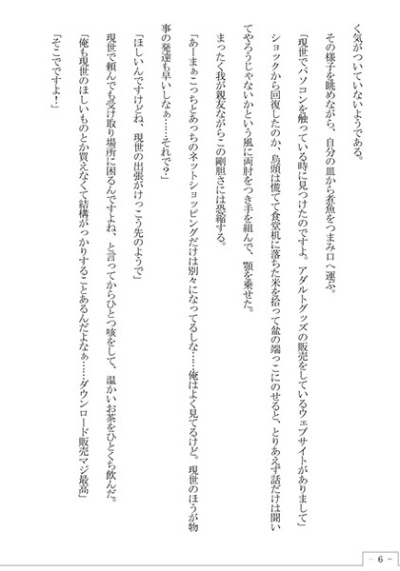 く気がついていないようである。
その様子を眺めながら、自分の皿から煮魚をつまみ口へ運ぶ。
「現世でパソコンを触っている時に見つけたのですよ。アダルトグッズの販売をしているウェブサイトがありまして」
ショックから回復したのか、烏頭は慌てて食堂机に落ちた米を拾って盆の端っこにのせると、とりあえず話だけは聞い
てやろうじゃないかという風に両肘をつき手を組んで、顎を乗せた。
まったく我が親友ながらこの剛胆さには恐縮する。
「あーまぁこっちとあっちのネットショッピングだけは別々になってるしな……俺はよく見てるけど。現世のほうが物
事の発達も早いしなぁ……それで？」
「ほしいんですけどね、現世の出張がけっこう先のようで」
現世で頼んでも受け取り場所に困るんですよね、と言ってからひとつ咳をして、温かいお茶をひとくち飲んだ。
「俺も現世のほしいものとか買えなくて結構がっかりすることあるんだよなぁ……ダウンロード販売マジ最高」
「そこでですよ！」
- 6 -